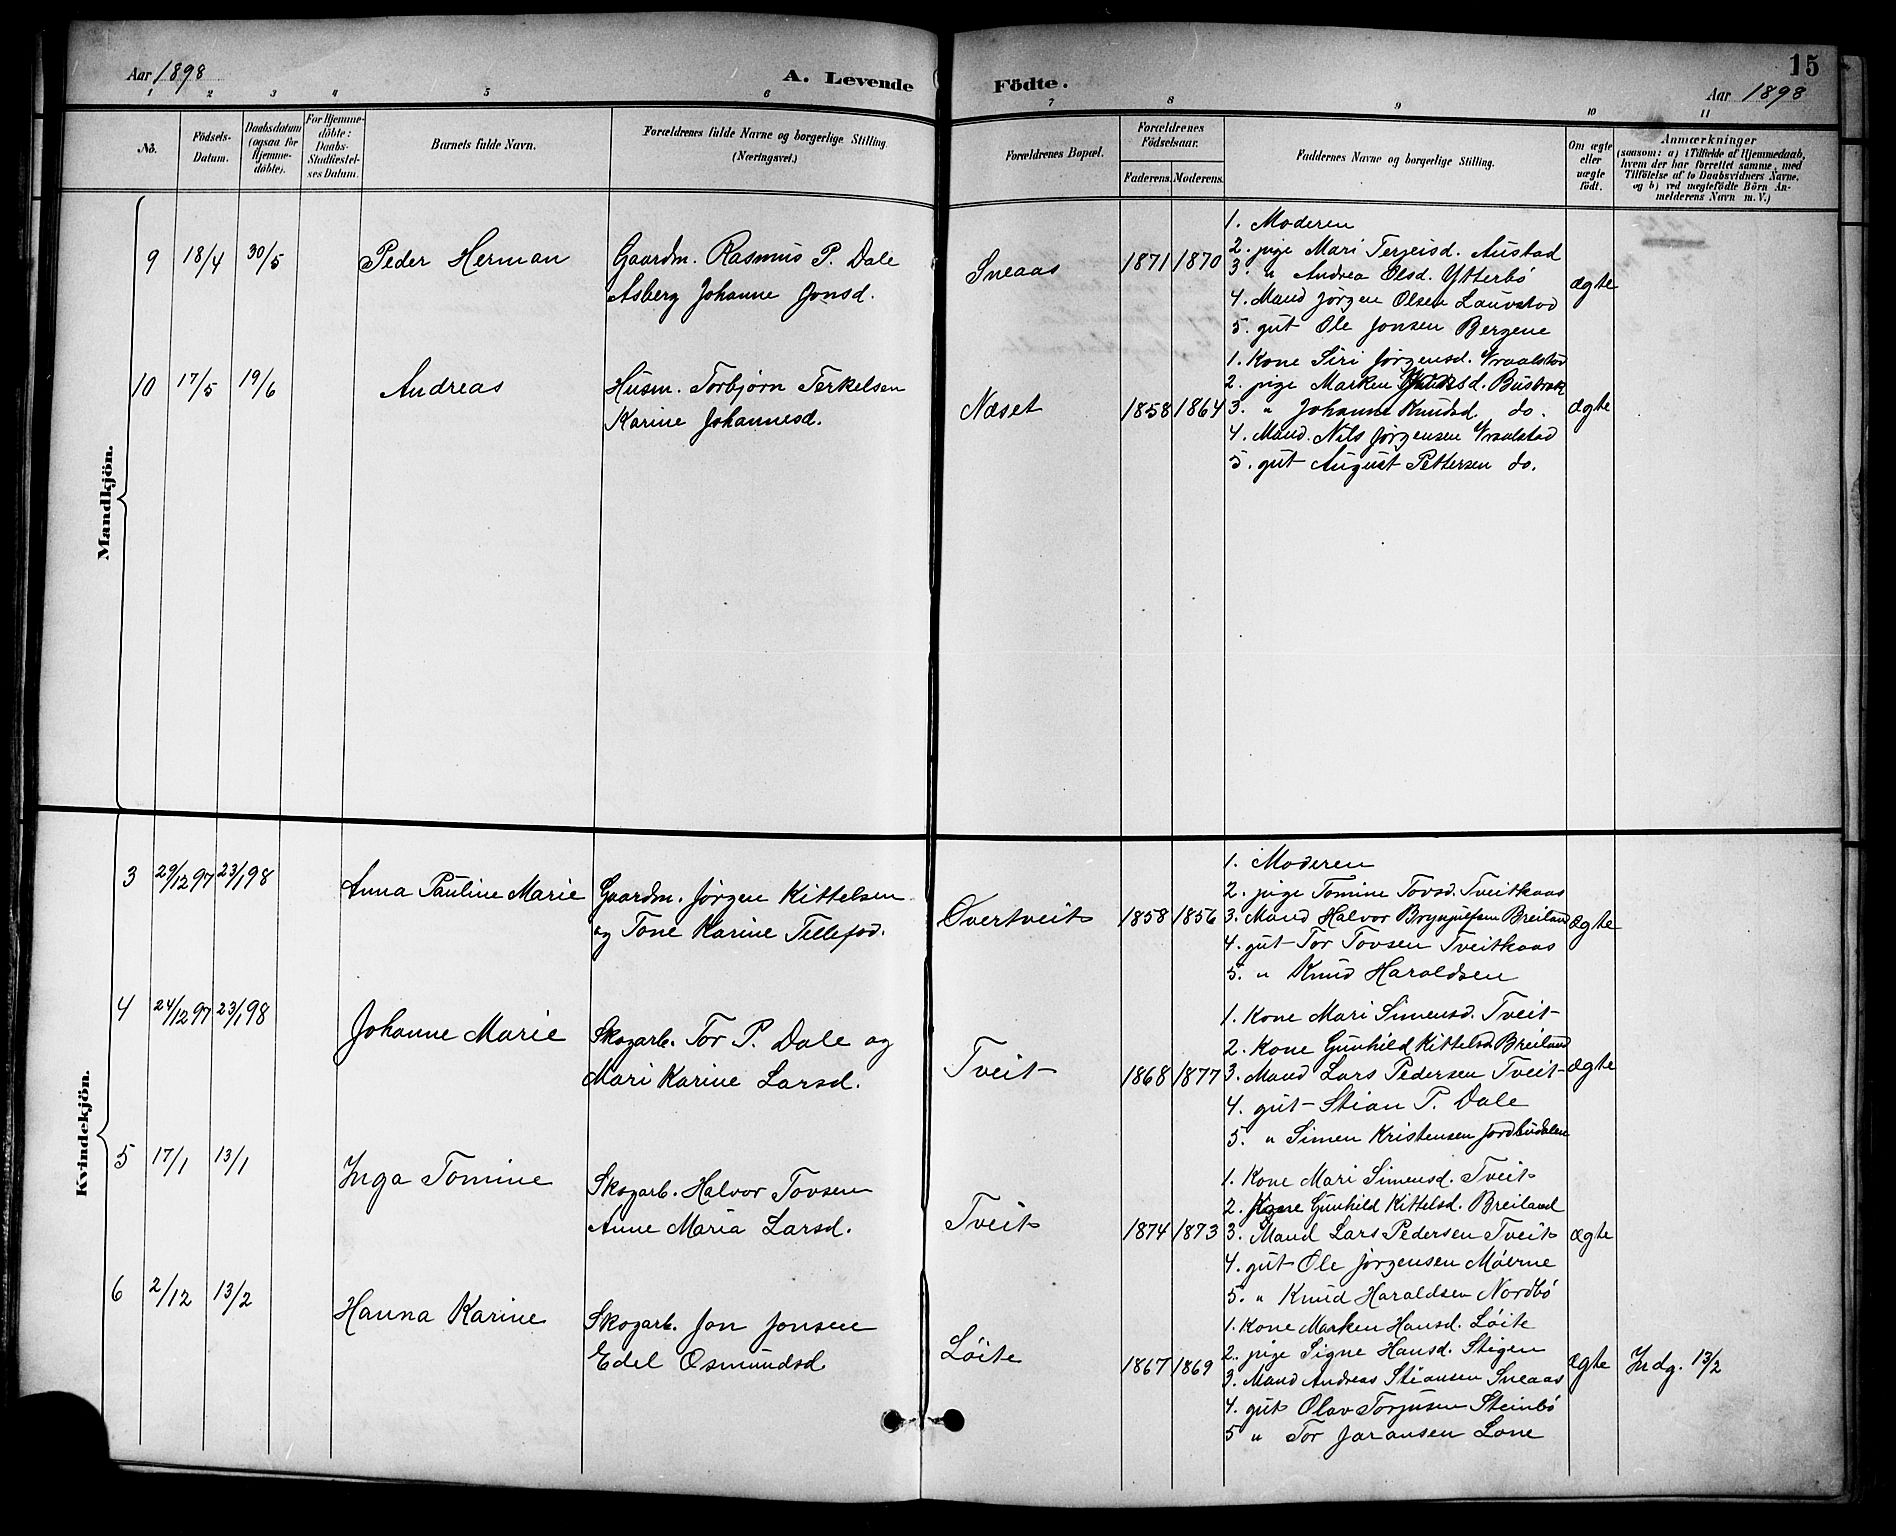 Aar 1898
A. Levende Födte.
15
Aar 1898
1 2 3 4 5 6 7 8 9 10 11
No.
Födsels-
Datum.
Daabsdatum
(ogsaa for
Hjemme-
döbte).
For Hjemme-
döbte:
Daabs-
Stadfæstel-
ses Datum.
Barnets fulde Navn.
Forældrenes fulde Navne og borgerlige Stilling
(Næringsvei.)
Forældrenes Bopæl.
Forældrenes
Födselsaar.
Faderens. Moderens.
Faddernes Navne og borgerlige Stilling.
Om ægte
eller
uægte
födt.
Anmærkninger
(saasom: a) i Tilfælde af Hjemmedaab,
hvem der har forrettet samme, med
Tilföielse af to Daabsvidners Navne,
og b) ved uægtefödte Börn An-
melderens Navn m. V.)
Mandkjön.
9 18/4 30/5 Peder Herman
Gaardm. Rasmus P. Dale
Asberg Johanne Jonsd.
Sneaas 1871 1870
1. Moderen
2. pige Mari Terjeisd. Austad
3. " Andrea Olsd. Ytterbö
4. Mand Jørgen Olsen Lauvstad
5. gut Ole Jonsen Bergene
ægte
10 17/5 19/6 Andreas
Husm. Torbjørn Terkelsen
Karine Johannesd.
Næset 1858 1864
1. Kone Siri Jørgensd. Vraalstad
2. pige Marken Knudsd. Busbrak
3. " Johanne Knudsd. do.
4. Mand. Nils Jørgensen Vraalstad
5. gut August Pettersen do.
ægte
Kvindekjön.
3 29/12 97 23/1 98 Anna Pauline Marie
Gaardm. Jørgen Kittelsen
og Tone Karine Tellefsd.
Overtveit 1858 1856
1. Moderen
2. pige Tomine Tovsd. Tveitkaas
3. Mand Halvor Brynjulfsen Breiland
4. gut Tor Tovsen Tveitkaas
5. " Knud Haraldsen
ægte
4 24/12 97 23/1 98 Johanne Marie
Skogarb. Tor P. Dale og
Mari Karine Larsd.
Tveit 1868 1877
1. Kone Mari Simensd. Tveit
2. Kone Gunhild Kittelsd Breiland
3. Mand Lars Pedersen Tveit
4. gut Stian P. Dale
5. " Simen Kristensen Jordbudalen
ægte
5 17/1 13/1 Inga Tomine
Skogarb. Halvor Tovsen
Anne Maria Larsd.
Tveit 1874 1873
1. Kone Mari Simensd. Tveit
2. Kone Gunhild Kittelsd. Breiland
3. Mand Lars Pedersen Tveit
4. gut Ole Jørgensen Moerne
5. " Knud Haraldsen Nordbö
ægte
6 2/12 13/2 Hanna Karine
Skogarb. Jon Jonsen
Edel Osmundsd.
Löite 1867 1869
1. Kone Marken Hansd. Löite
2. pige Signe Hansd. Stigen
3. Mand Andreas Stiansen Sneaas
4. gut Olav Torjusen Steinbö
5 " Tor Jaransen Lone
ægte
Indg. 13/2